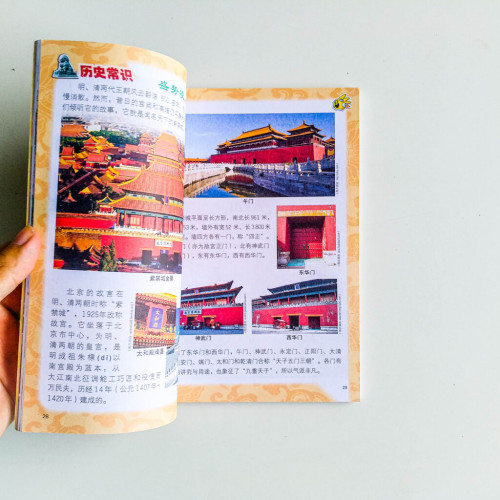 历史常识
明、清两代王朝风云
懂消散。然而，昔日的
们倾听它的故事，它就是
紫禁城全景
北京的故宫在
明、清两朝时称“紫
禁城”，1925年改称
故宫。它坐落于北
京市中心，为明、
清两朝的皇宫，是
明成祖朱棣(dì)以
南京宫殿为蓝本，从
大江南北征调能工巧匠和役使百
万民夫，历经14年（公元1407年—
1420年）建成的。
太和殿牌匾
28
午门
城平面呈长方形，南北长961米，
53米，墙外有宽52米、长3800米
。城四方各有一门，称“四正”。
门（亦为故宫正门），北有神武门
），东有东华门，西有西华门。
东华门
神武门
西华门
了东华门和西华门，午门、神武门、永定门、正阳门、大清
安门、端门、太和门和乾清门合称“天子五门三朝”。各门有
讲究与用途，也象征了“九重天子”，所以气派非凡。
29